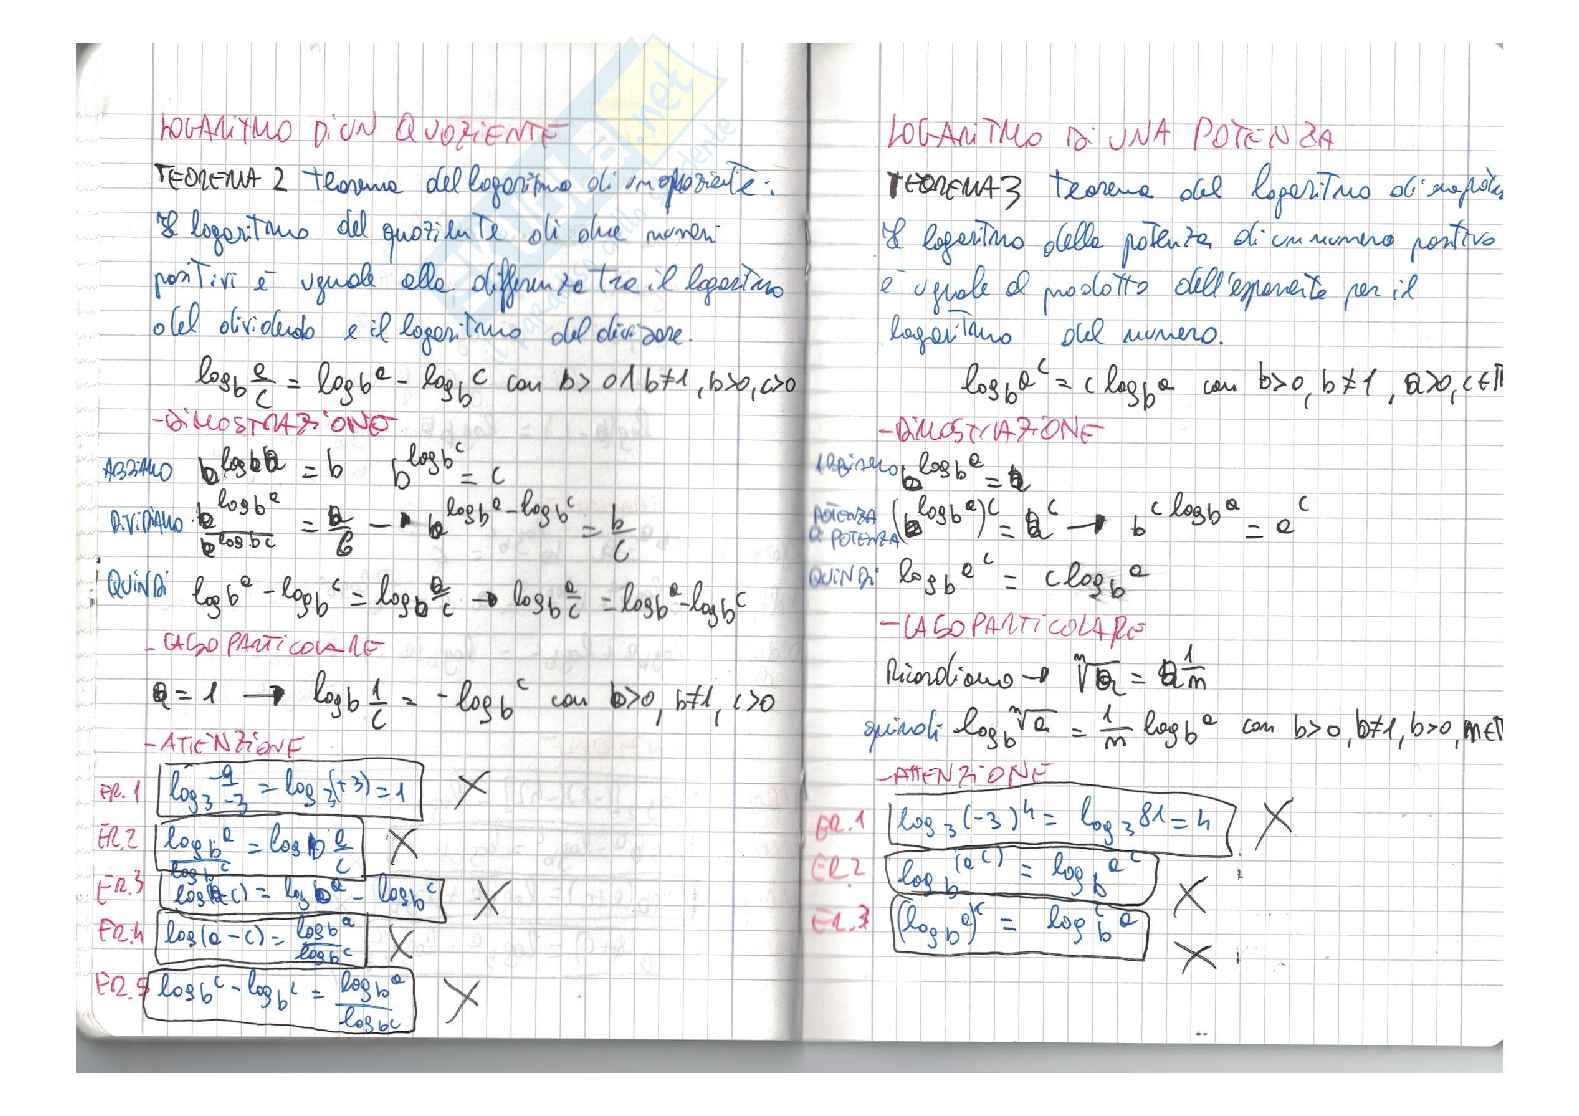 LOGARITMO DI UN QUOZIENTE
TEOREMA 2 teorema del logaritmo di un quoziente:
Il logaritmo del quoziente di due numeri
positivi è uguale alla differenza tra il logaritmo
del dividendo e il logaritmo del divisore.
log_b a/c = log_b a - log_b c con b>0 1 b≠1, b>0, c>0
-DIMOSTRAZIONE
ABBIAMO b^(log_b b) = b b^(log_b c) = c
DIVIDIAMO b^(log_b a) / b^(log_b c) = a/c → b^(log_b a - log_b c) = b/c
QUINDI log_b a - log_b c = log_b a/c → log_b a/c = log_b a - log_b c
- CASO PARTICOLARE
a = 1 → log_b 1/c = - log_b c con b>0, b≠1, c>0
-ATTENZIONE
ER.1 log_3 -9/-3 = log_3(+3) = 1 X
ER.2 log_b a / log_b c = log_b a/c X
ER.3 log(a-c) = log_b a - log_b c X
ER.4 log(a-c) = log_b a / log_b c X
ER.5 log_b c - log_b c = log_b a / log_b c X
LOGARITMO DI UNA POTENZA
TEOREMA 3 teorema del logaritmo di
Il logaritmo della potenza di un numero positivo
è uguale al prodotto dell'esponente per il
logaritmo del numero.
log_b a^c = c log_b a con b>0, b≠1, a>0, c∈
-DIMOSTRAZIONE
b^(log_b a) = a
POTENZA
DI POTENZA (b^(log_b a))^c = a^c → b^(c log_b a) = a^c
QUINDI log_b a^c = c log_b a
- CASO PARTICOLARE
Ricordiamo → ᵐ√a = a^(1/m)
quindi log_b ᵐ√a = 1/m log_b a con b>0, b≠1, b>0, m∈
-ATTENZIONE
ER.1 log_3 (-3)^4 = log_3 81 = 4 X
ER.2 log_b (a^c) = log_b a^c X
ER.3 (log_b a)^c = log_b^c a X